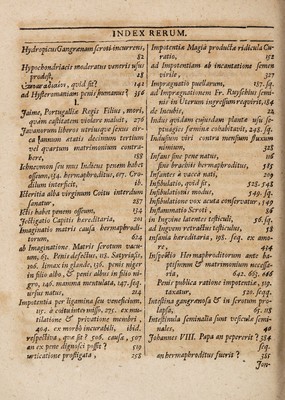 INDEX RERUM.
Hydropicus Gangrænam scroti incurrens,
82
Hypochondriacis moderatus veneris usus
prodest, 18
quid sit? 142
ad Hysteromaniam penis humanus? 356
I.
Jaime, Portugalliæ Regis Filius, mori,
quàm castitatem violare mabult, 276
Javanorum liberos utriusque sexus cir-
ca annum ætatis decimum tertium
vel quartum matrimonium contra-
here, 188
Ichneumon seu mus Indicus penem habet
osseum, 134. hermaphroditus, 617. Cro-
dilum interficit, ib.
Icteritia alba virginum Coitu interdum
sanatur, 287
Ictis habet penem osseum, 134
Iolligatio Capitis hereditaria, 201
Imaginatio matris causa hermaphrodi-
torum, 614
ab Imaginatione Matris scrotum vacu-
um, 61. Penis defectus, 118. Satyriasis,
206. simax in glande, 136. penis niger
in filio albo, & penis albus in filio ni-
gro, 146. mamma mentulata, 147. seq.
ursus natus, 214
Impotentia per ligamina seu veneficium,
115. à coitu intermisso, 275. ex mu-
tilatione & privatione membri,
404. ex morbo incurabili, ibid.
respectiva, quæ sit? 506. causa, 507
an ex pene dignosci possit? 519
urticatione prostigata, 258
Impotentia Magiâ producta ridicula Cu-
ratio, 152
ad Impotentiam ab incantatione semen
virile, 327
Impragnatio puellarum, 157. sq.
ad Impragnationem Fr. Ruyschius semi-
nis in Uterum ingressum requirit, 184
de Incubis, 22
Indus quidam cujusdam plantæ usu se-
ptuagies fæminâ cohabitavit, 248. sq.
Infantem viri contra mensium fluxum
nimium, 328
Infans sine pene natus, 116
sine brachiis hermaphroditus, 572
Infantes è vaccâ nati, 209
Infibulatio, quid sit, 528. 548
Infibulationis modus, 549. sq.
Infibulatione vox acuta conservatur, 549
Inflammatio Scroti, 86
in Inguine latentes testiculi, 56. sq.
ad Inguen retractus testiculus, 58
Insania hereditaria, 198. seq. ex amo-
re, 424
Inspectio Hermaphroditorum ante ba-
ptismum & matrimonium necessa-
ria, 642. 663. 666
Penis publica ratione impotentiæ, 519.
taxatur, 520. seq.
Intestina gangrænosa & in scrotum pro-
lapsa, 65. 118
Intestinula seminalia sunt vesiculæ semi-
nales, 40
Johannes VIII. Papa an pepererit? 384
seq.
an hermaphroditus fuerit? 385
Jon-